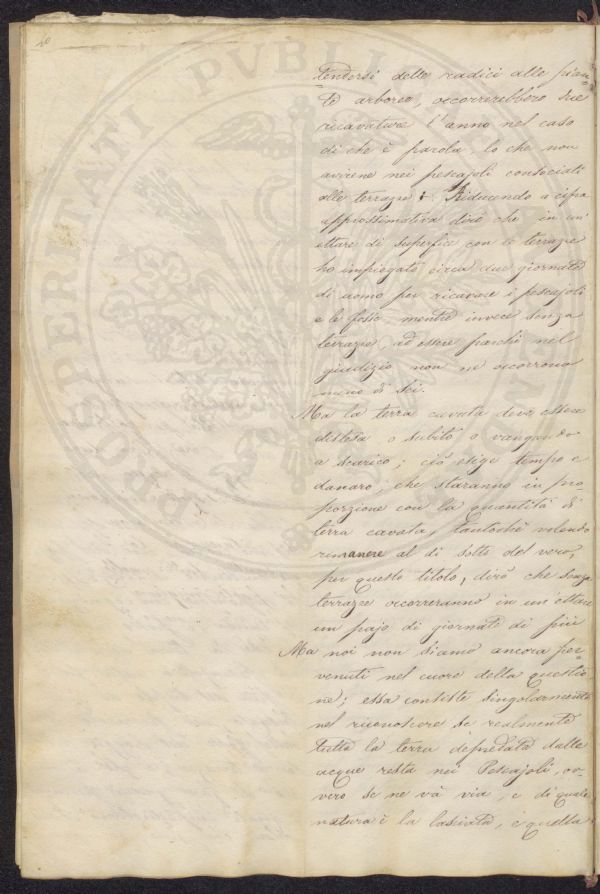 10
tendersi delle radici alle pian=
te arboree, occorrerebbero due
ricavature l'anno nel caso
di che è parola, lo che non
avviene nei pescajoli consociati
alle terrazze. Riducendo a cifra
approssimativa dirò che in un'
ettare di superficie con le terrazze
ho impiegato circa due giornate
di uomo per ricavare i pescajoli
e le fosse, mentre invece senza
terrazze, ad essere parchi nel
giudizio non ne occorrono
meno di sei.
Ma la terra cavata deve essere
distesa o subito o vangando
a scarico; ciò esige tempo e
danaro, che staranno in pro
porzione con la quantità di
terra cavata, tantochè volendo
rimanere al di sotto del vero,
per questo titolo, dirò che senza
terrazze occorreranno in un'ettare
un pajo di giornate di più
Ma noi non siamo ancora per=
venuti nel cuore della questio
ne; essa consiste singolarmente
nel riconoscere se realmente
tutta la terra depredata dalle
acque resta nei Pescajoli, ov=
vero se ne và via, e di quale
natura è la lasciata, e quella
PROSPERITATI PVBLICAE